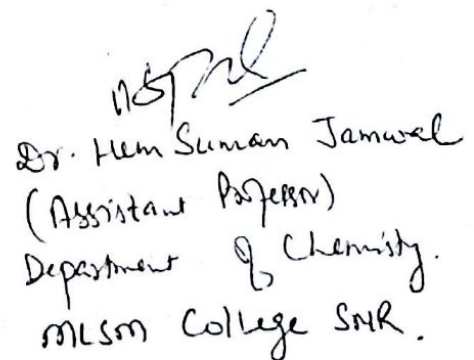 Dr. Hem Suman Jamwal
(Assistant Professor)
Department of Chemistry.
MLSM College SNR.